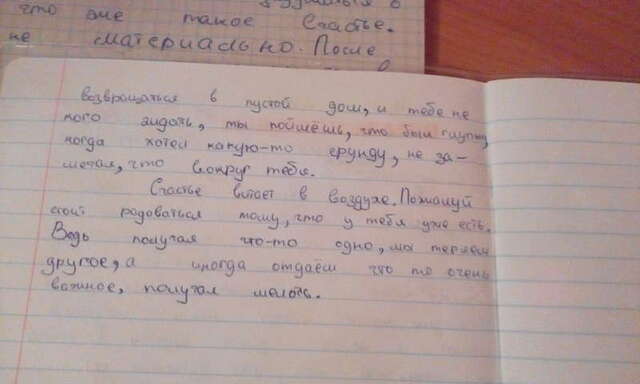 что же такое Счастье.
не материально. После
возвращаться в пустой дом, и тебе не
кого ждать, ты поймёшь, что был глупым,
когда хотел какую-то ерунду, не за-
метал, что вокруг тебя.
Счастье витает в воздухе. Пожалуй
стоит родоваться тому, что у тебя уже есть.
Ведь получая что-то одно, мы теряем
другое, а иногда отдаём что то очень
важное, получая мелочь.